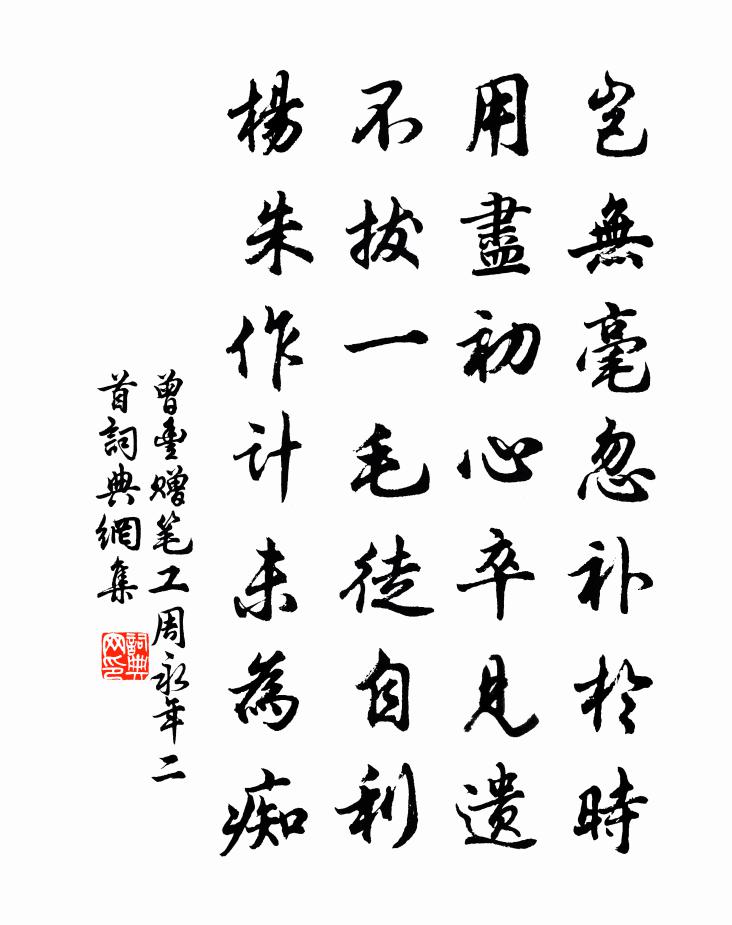 豈無毫忽补於時
用盡初心卒見遗
不拔一毛徒自利
楊朱作计未為痴
曾豊赠笔工周永年二
首詞典網集